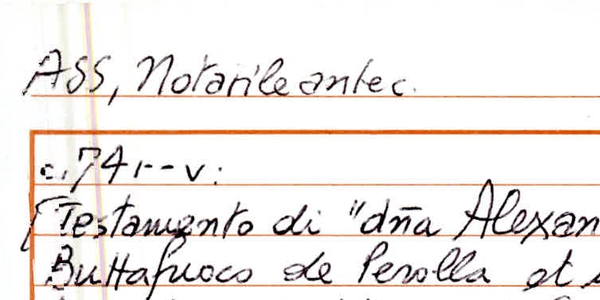 ASS, Notarile antec.
c. 74r-v:
Testamento di "dña Alexan
Buttafuoco de Perolla et